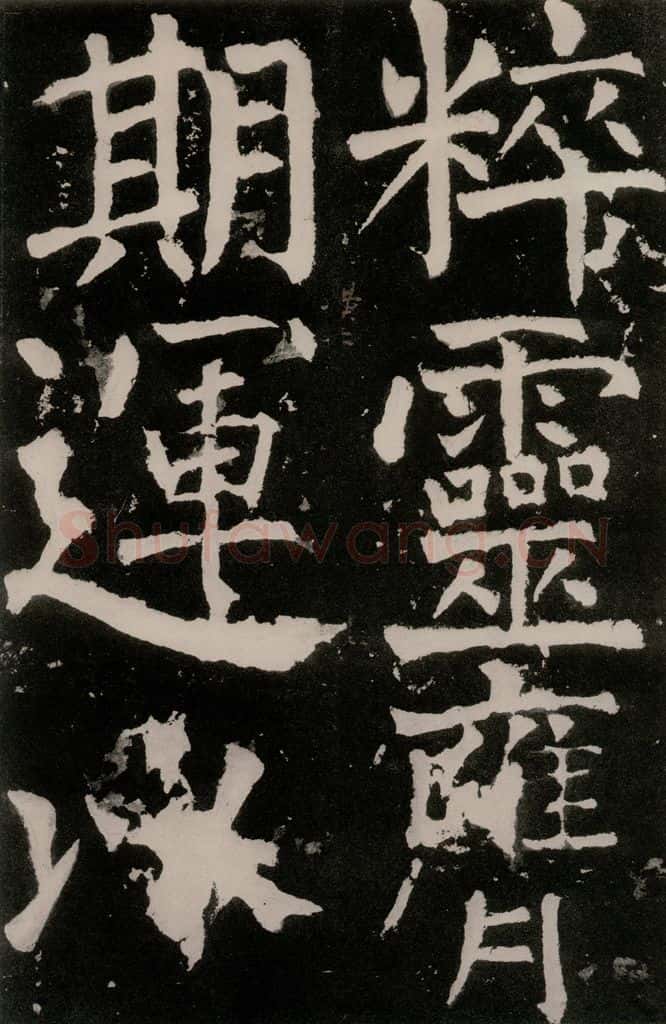 粹靈膺
期運
Shufawang.CN